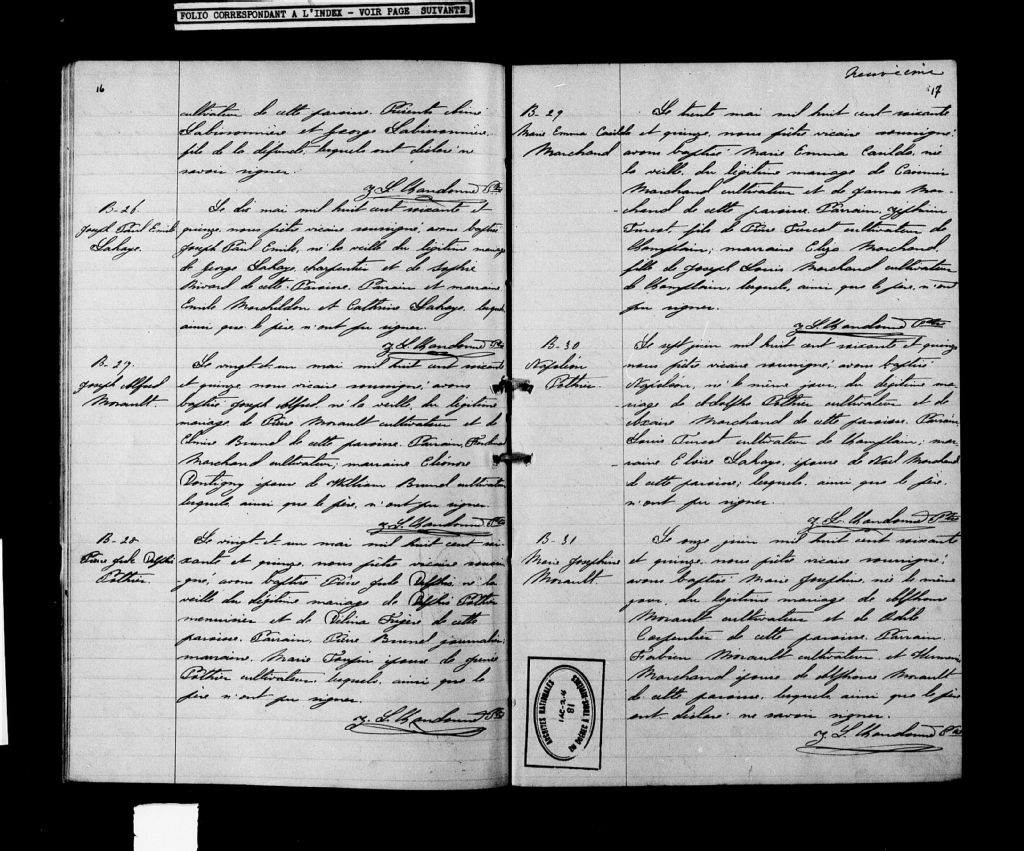 FOLIO CORRESPONDANT A L'INDEX - VOIR PAGE SUIVANTE
16
cultivateur de cette paroisse. Présents
Labissonnière et George Labissonnière,
fils de la défunte, lesquels ont déclaré ne
savoir signer.
Ptre
B-26
Joseph Paul Emile
Lahaye.
Le dix mai mil huit cent soixante et
quinze, nous prêtre vicaire soussigné, avons baptisé
Joseph Paul Emile, né la veille du légitime mariage
de George Lahaye charpentier et de Sophie
Rivard de cette Paroisse. Parrain et marraine
Emile Marchildon et Cathrine Lahaye, lesquels
ainsi que le père, n'ont pu signer.
Ptre
B-27.
Joseph Alfred
Morault.
Le vingt-et-un mai mil huit cent soixante
et quinze, nous vicaire soussigné, avons
baptisé Joseph Alfred, né la veille, du légitime
mariage de Pierre Morault cultivateur et de
Brunel de cette paroisse. Parrain,
Marchand cultivateur; marraine Eléonore
Dontigny épouse de William Brunel cultivateur
lesquels ainsi que le père, n'ont pu signer.
Ptre
B-28
Pierre Jule Delphis
Pothier.
Le vingt-et un mai mil huit cent soi-
xante et quinze, nous prêtre vicaire soussi-
gné, avons baptisé Pierre Jule Delphis, né la
veille du légitime mariage de Delphis Pothier
menuisier et de Délina Frigère de cette
paroisse. Parrain, Pierre Brunel journalier;
marraine, Marie épouse de
Pothier cultivateur, lesquels, ainsi que le
père n'ont pu signer.
Ptre
neuvième
17
B-29
Marie Emma Canilda
Marchand
Le trente mai mil huit cent soixante
et quinze, nous prêtre vicaire soussigné,
avons baptisé Marie Emma Canilda, née
la veille, du légitime mariage de Casimir
Marchand cultivateur et de Mar-
chand de cette paroisse. Parrain, Zéphirin
Turcot, fils de Pierre Turcot cultivateur de
Champlain; marraine Eliza Marchand,
fille de Joseph Louis Marchand cultivateur
de Champlain, lesquels, ainsi que le père, n'ont
pu signer.
Ptre
B-30
Napoléon
Pothier
Le sept juin mil huit cent soixante et quinze
nous prêtre vicaire soussigné, avons baptisé
Napoléon, né le même jour, du légitime ma-
riage de Adolphe Pothier cultivateur et de
Marchand de cette paroisse. Parrain,
Louis Turcot cultivateur de Champlain; mar-
raine Eloïse Lahaye, épouse de Noël Marchand
de cette paroisse; lesquels, ainsi que le père,
n'ont pu signer.
Ptre
B-31
Marie Josephine
Morault.
Le onze juin mil huit cent soixante
et quinze, nous prêtre vicaire soussigné,
avons baptisé Marie Josephine, née le même
jour, du légitime mariage de Alphonse
Morault cultivateur et de Adèle
Carpentier de cette paroisse. Parrain
Fabien Morault cultivateur, et
Marchand épouse de Alphonse Morault
de cette paroisse, lesquels ainsi que le père
ont déclaré ne savoir signer.
Ptre
ARCHIVES NATIONALES
DU QUÉBEC A TROIS-RIVIERES